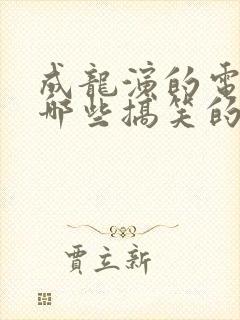 成龍演的電
那些搞笑的
賈立新